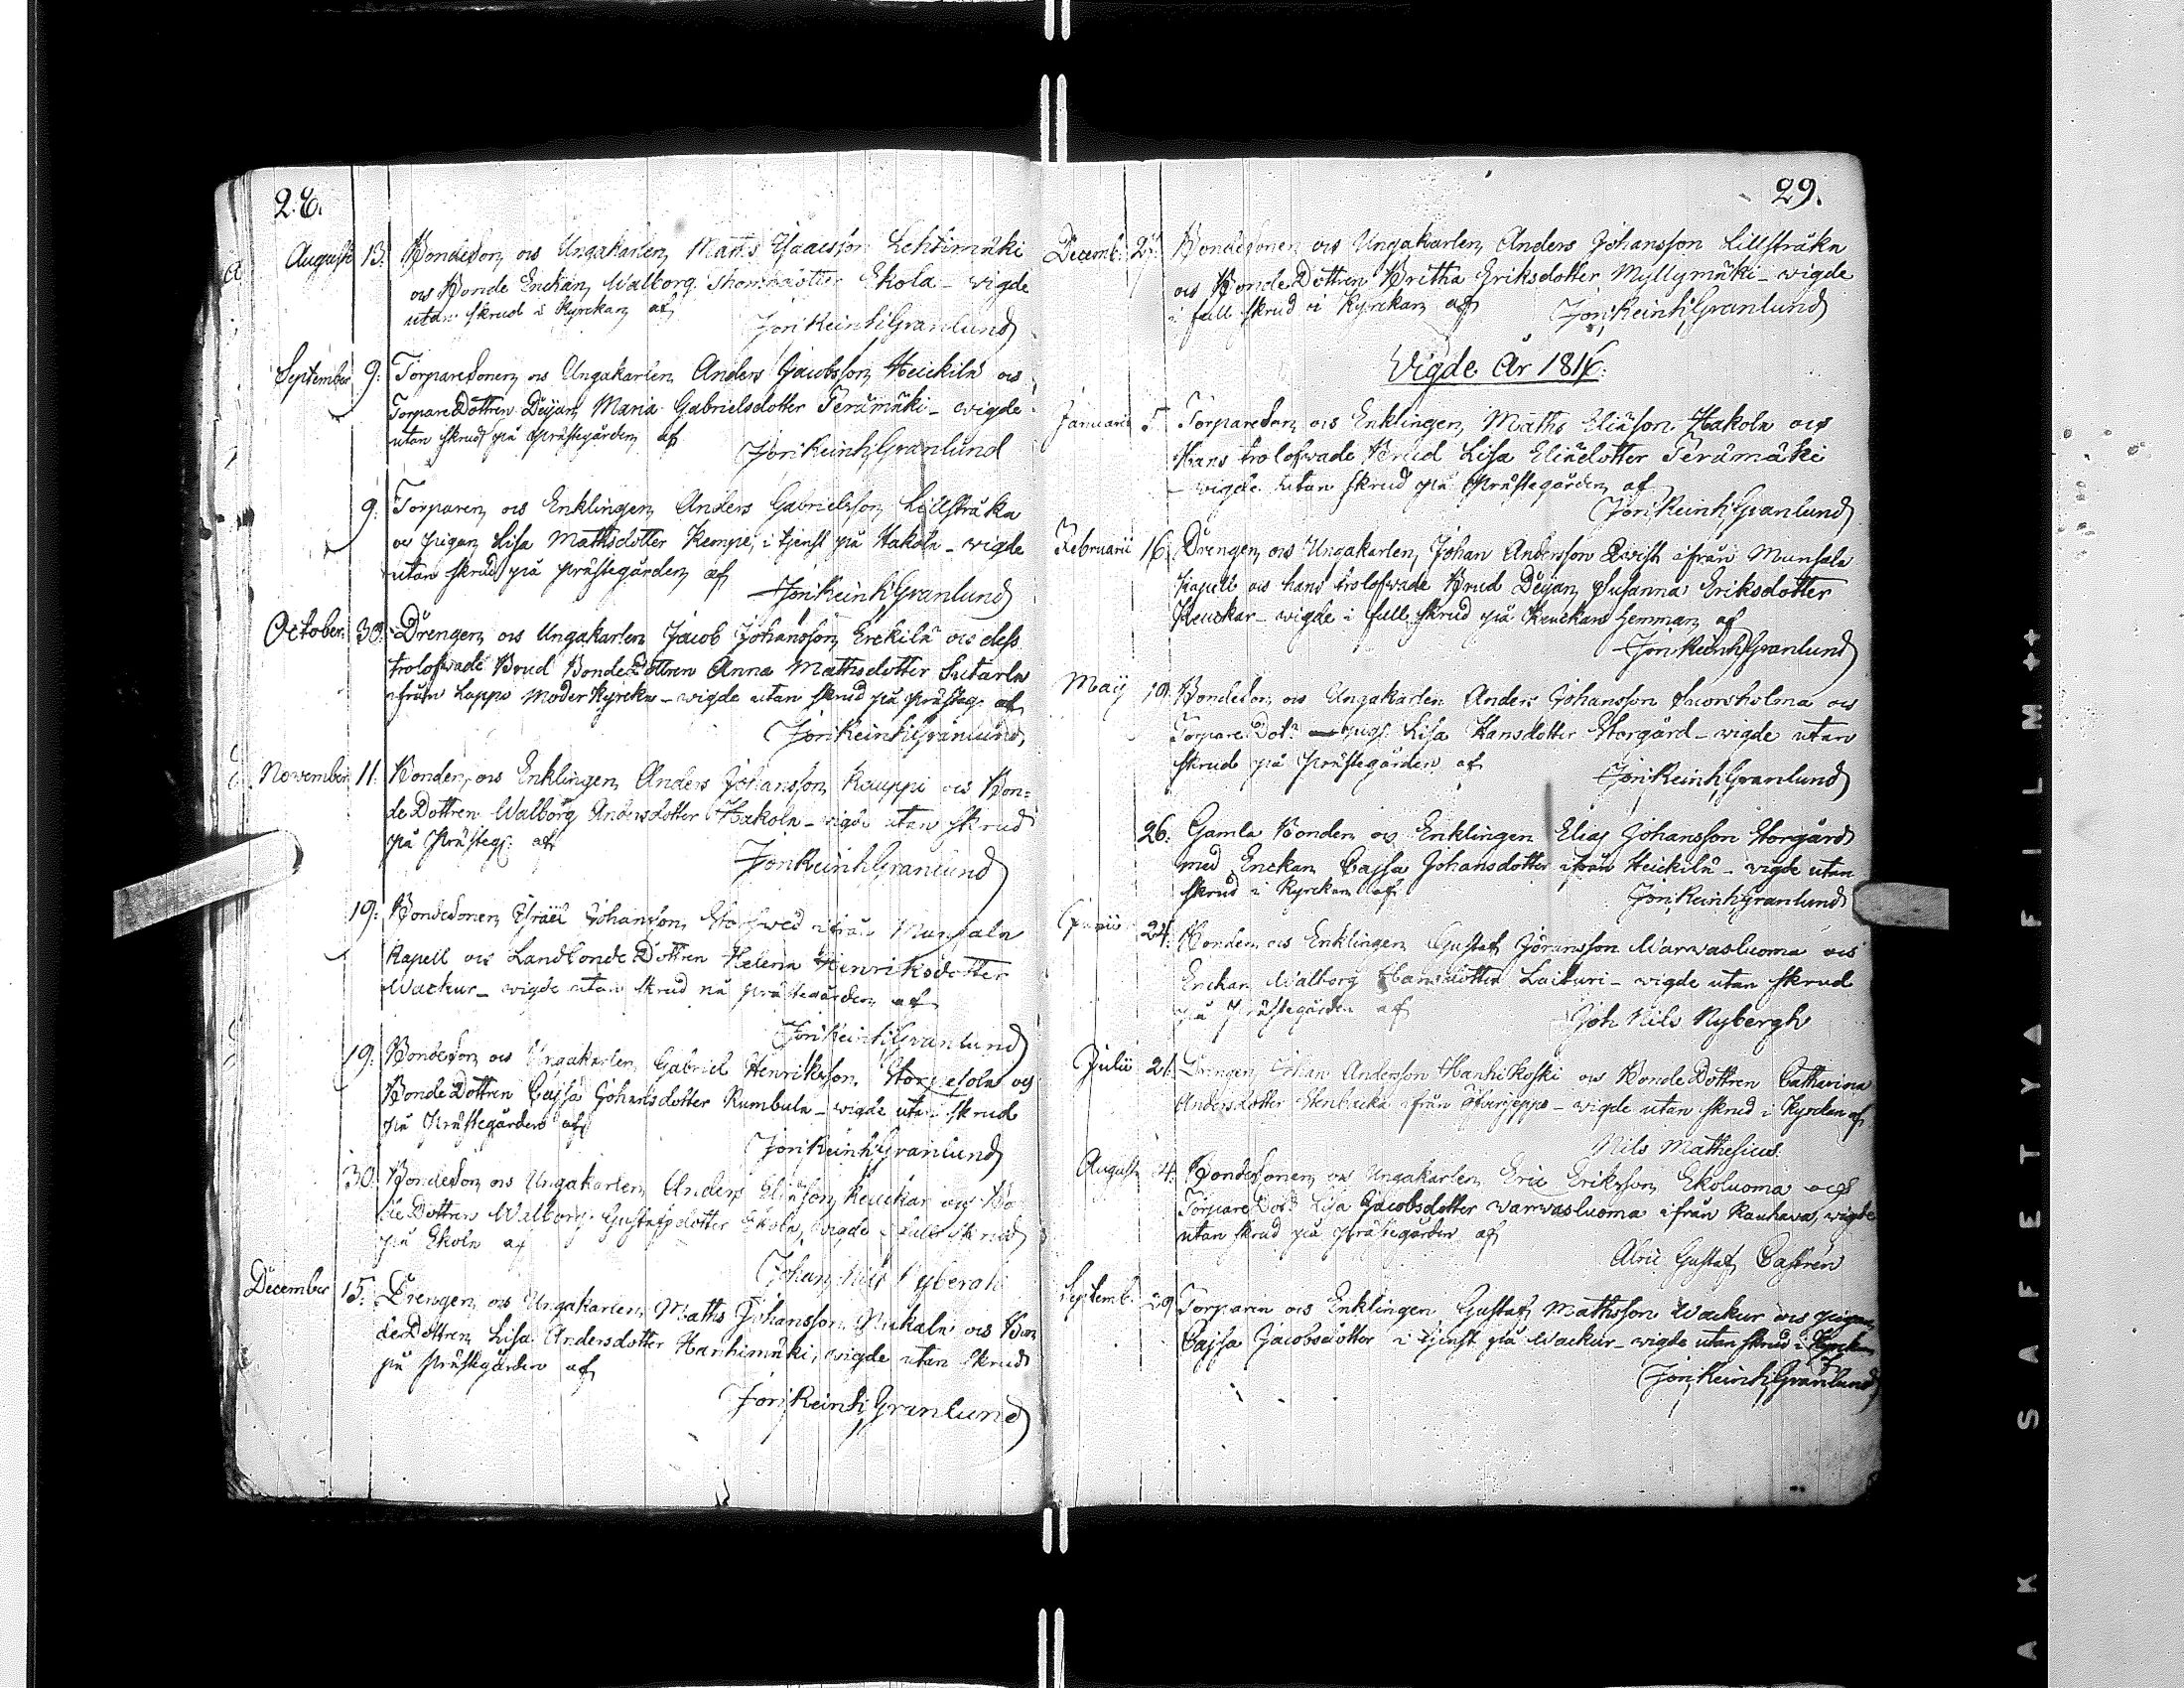 28.
Augusti 13. Bondeson, ocs Ungakarlen, Matts Isaacsson Lehtimäki
ocs Bonde Enckan, Walborg Thomasdotter Ekola - vigde
utan skrud i Kyrckan, af
Jon: Reinh: Granlund
September 9. Torparesonen, ocs Ungakarlen, Anders Jacobsson, Heickilä ocs
TorpareDottren Deijan, Maria Gabrielsdotter Perämäki - vigde
utan skrud på prästegården, af
Jon: Reinh: Granlund
9. Torparen, ocs Enklingen, Anders Gabrielsson, Lillstråka
oc pigan, Lisa Mathsdotter Kempe, i tjenst på Hakola - vigde
utan skrud på prästegården, af
Jon: Reinh: Granlund
October 30. Drengen, ocs Ungakarlen Jacob Johansson, Erckilä ocs dess
trolofwade Brud BondeDottren Anna Mathsdotter Sutarla
ifrån Lappo Moderkyrcka - vigde utan skrud på prästeg: af
Jon: Reinh: Granlund
November 11. Bonden, ocs Enklingen, Anders Johansson, Kauppi ocs Bon=
deDottren Walborg Andersdotter Hakola - vigde utan skrud
på Prästeg: af
Jon: Reinh: Granlund
19. Bondesonen, Israel Johansson, ifrån Munsala
Kapell ocs LandbondeDottren Helena Henriksdotter
Wackur - vigde utan skrud på prästegården, af
Jon: Reinh: Granlund
19. Bondeson, ocs Ungakarlen, Gabriel Henriksson, ocs
BondeDottren Cajsa Johansdotter Rumbula - vigde utan skrud
på Prästegården af
Jon: Reinh: Granlund
30. Bondeson, ocs Ungakarlen, Anders Eliäson, Keuckar ocs Bo
deDottren Walborg Gustafsdotter Ekola, vigde i full skrud
på Ekola af
Johan Nils Nybergh
December 15. Drengen, ocs Ungakarlen, Maths Johansson Nickala ocs Bon
deDottren Lisa Andersdotter Hanhimäki, vigde utan skrud
på prästegården af
Jon: Reinh: Granlund
29.
Decemb: 27. Bondesonen ocs Ungakarlen, Anders Johansson Lillstråka
ocs BondeDottren Britha Eriksdotter Myllymäki - vigde
i full skrud i Kyrckan af
Jon: Reinh: Granlund
Vigde År 1816.
Januarii 5. Torpareson, ocs Enklingen, Maths Eliäson Hakola ocs
Hans trolofwade Brud Lisa Eliædotter Perämäki
- vigde utan skrud på Prästegården af
Jon: Reinh: Granlund
Februarii 16. Drengen, ocs Ungakarlen, Johan Andersson Qwist ifrån Munsala
Kapell ocs hans trolofwade Brud Deijan, Susanna Eriksdotter
Keuckar - vigde i full skrud på Keuckars hemman, af
Jon: Reinh: Granlund
Maij 19. Bondeson, ocs Ungakarlen Anders Johansson Sworsholma ocs
Torpare Dotr: pig: Lisa Hansdotter Storgård - vigde utan
skrud på Prästegården af
Jon: Reinh: Granlund
26. Gamla Bonden ocs Enklingen Elias Johansson Storgård
med Enckan Cajsa Johansdotter ifrån Heickilä - vigde utan
skrud i Kyrckan af
Jon: Reinh: Granlund
Junii 24. Bonden, ocs Enklingen, Gustaf Göransson Warwasluoma ocs
Enckan Walborg Hansdotter Laituri - vigde utan skrud
på Prästegården af
Joh Nils Nybergh
Julii 21. Drengen Johan Andersson Hanhikoski ocs BondeDottren Catharina
Andersdotter Stenbacka ifrån Öfverjeppo - vigde utan skrud i Kyrckan af
Nils Mathesius.
Augusti 4. Bondesonen, ocs Ungakarlen Eric Eriksson, Ekoluoma ocs
Torpare Dotr Lisa Jacobsdotter warwasluoma ifrån Kauhava, vigde
utan skrud på prästegården af
Alric Gustaf Castrén
Septemb. 29 Torparen ocs Enklingen Gustaf Mathsson Wackur ocs pigan,
Cajsa Jacobsdotter i tjenst på Wackur - vigde utan skrud i Kyrckan
af
Jon: Reinh: Granlund
AK SAFETY FILM ++